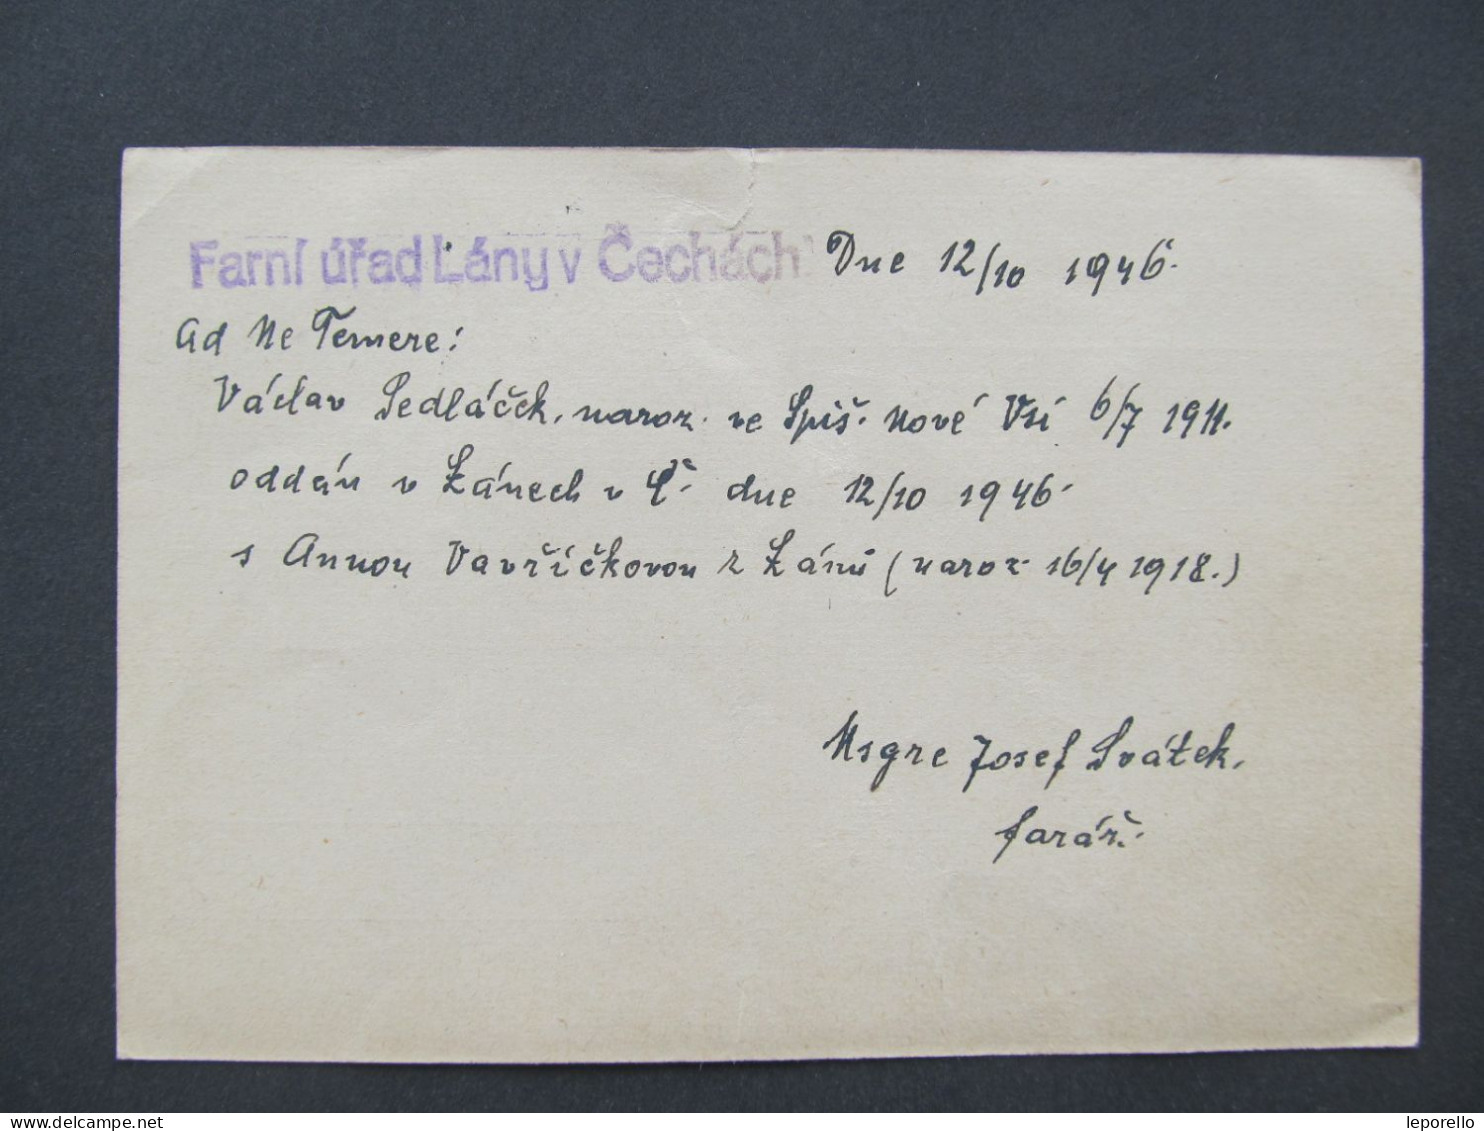 Farní úřad Lány v Čechách Dne 12/10 1946.
Ad Ne Temere:
Václav Sedláček, naroz. ve Spiš. Nové Vsi 6/7 1911.
oddán v Lánech v Č. dne 12/10 1946.
s Annou Vavřičkovou z Lánů (naroz. 16/4 1918.)
Msgre Josef Svátek,
farář.
leporello